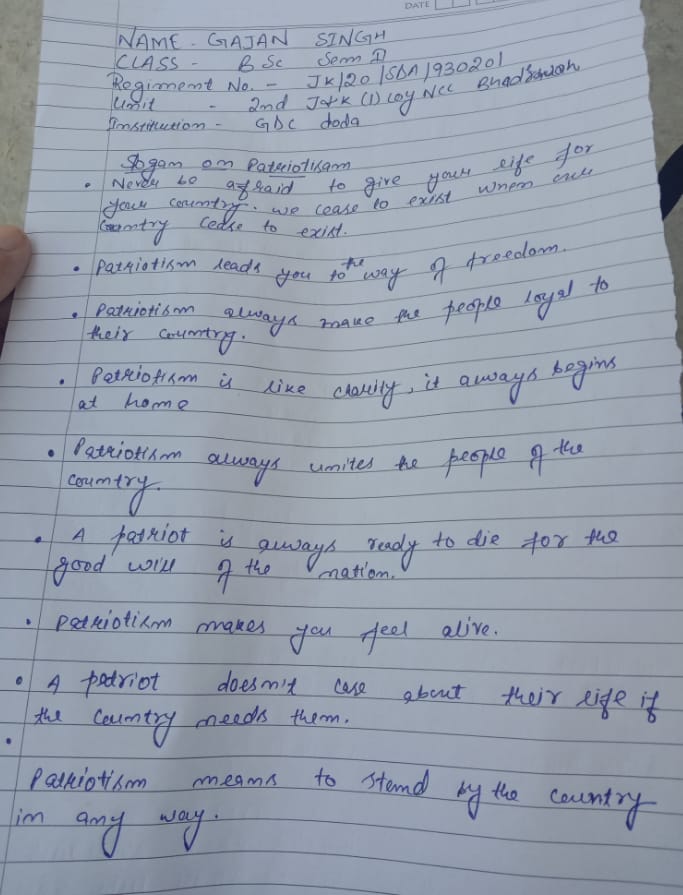 DATE
NAME - GAJAN SINGH
CLASS - B Sc Sem II
Regiment No. - JK/20/SDA/930201
Unit - 2nd J&K (I) Coy NCC Bhadarwah
Institution - GDC doda
Slogan on Patriotism
• Never be afraid to give your life for
your country. we cease to exist when our
Country cease to exist.
• Patriotism leads you to the way of freedom.
• Patriotism always make the people loyal to
their country.
• Patriotism is like charity, it always begins
at home
• Patriotism always unites the people of the
country.
• A patriot is always ready to die for the
good will of the nation.
• Patriotism makes you feel alive.
• A patriot doesn't case about their life if
the country needs them.
•
Patriotism means to stand by the country
in any way.